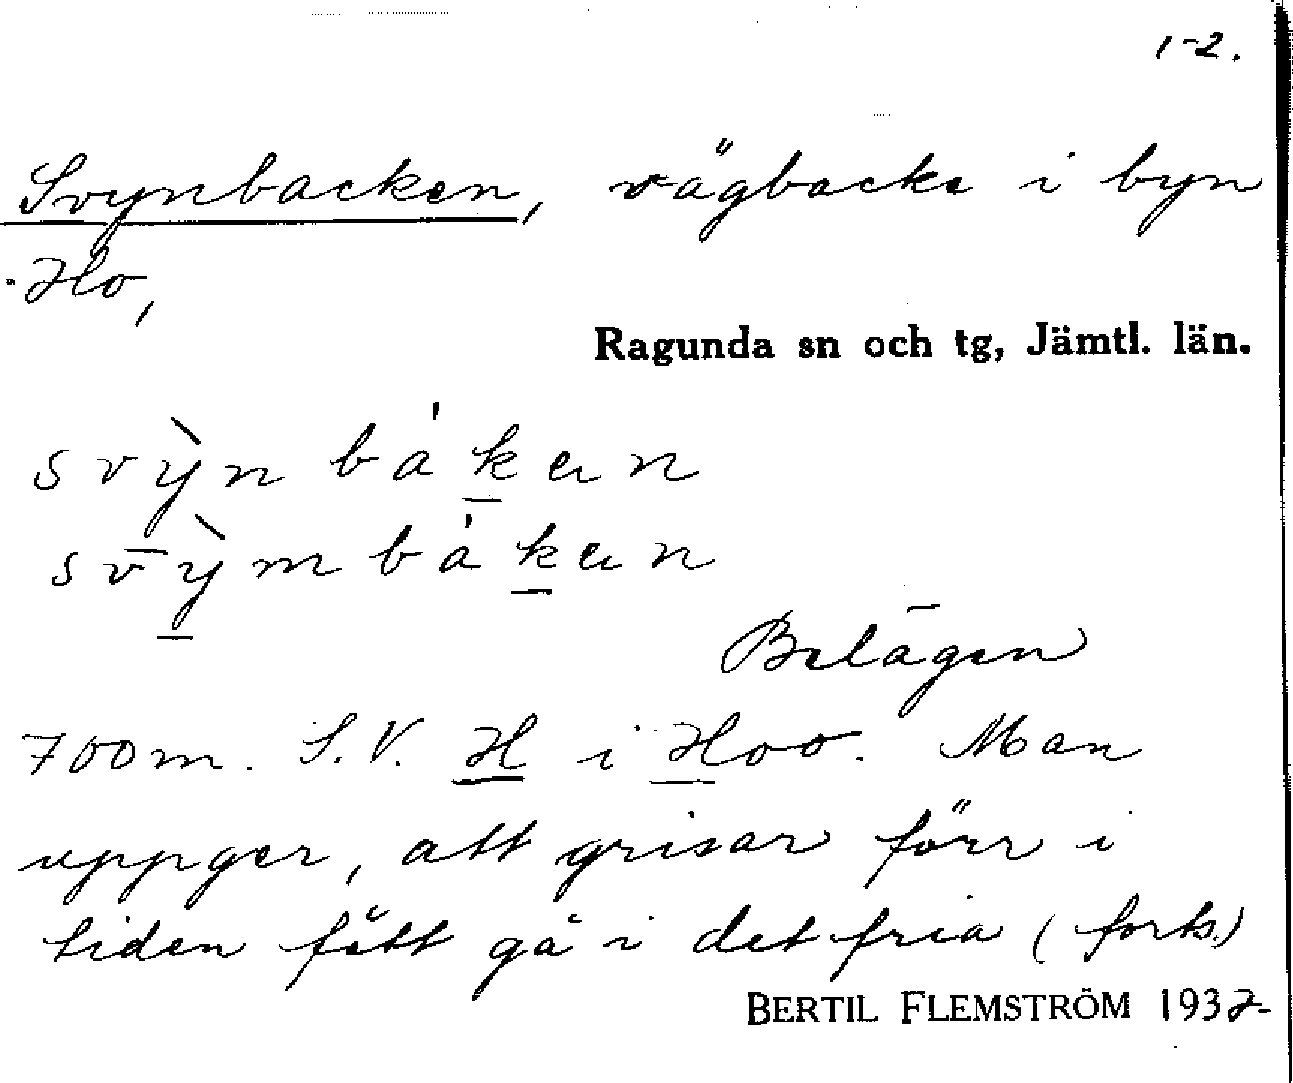 1-2.
Svynbacken, vägbacke i byn
Ho,
Ragunda sn och tg, Jämtl. län.
svỳn bákan
svỳmbákan
Belägen
700 m. S.V. H i Hoo. Man
uppger, att grisar förr i
tiden fått gå i det fria (forts.)
BERTIL FLEMSTRÖM 1932